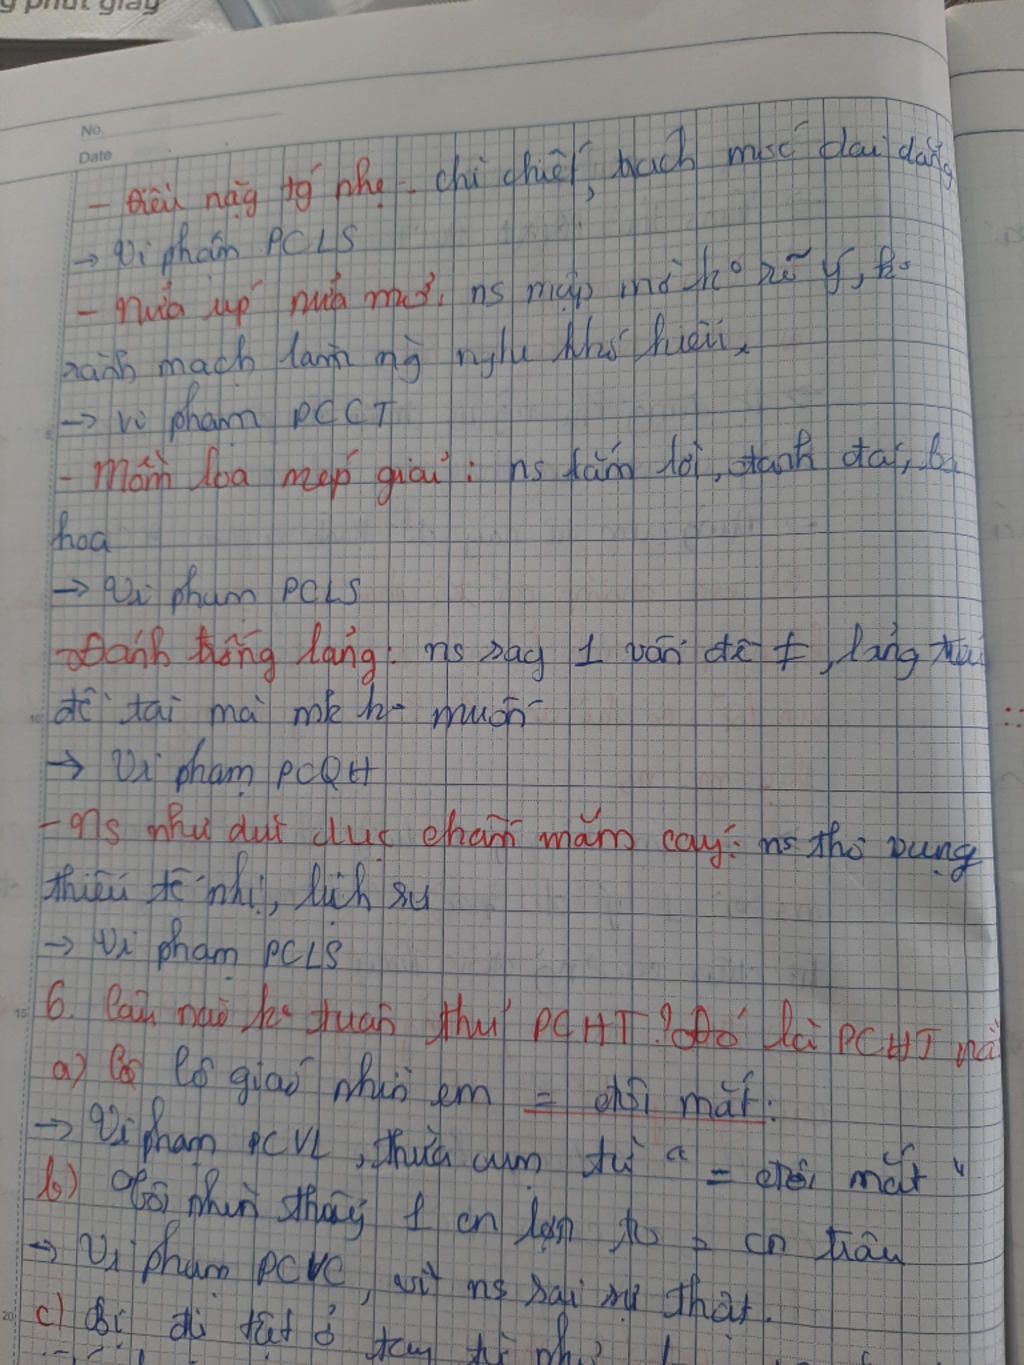 g phút giây
No.
Date
- điều nặg tg nhẹ - chì chiết, trách móc dai dẳng
→ Vi phạm PCLS
- Nửa úp nửa mở: ns mập mờ ko rõ ý, ko
rành mạch làm ng` nghe khó hiểu.
→ vi phạm PCCT
- Mồm loa mép giải: ns lắm lời, đanh đá,
hoa
→ Vi phạm PCLS
- Đánh trống lảng: ns sag 1 vấn đề ≠, lảng
đề tài mà mk ko muốn
→ Vi phạm PCQH
- Ns như dùi đục chấm mắm cáy: ns thô vụng
thiếu tế nhị, lịch sự
→ Vi phạm PCLS
6. Câu nào ko tuân thủ PCHT? Đó là PCHT nà
a) Cô giáo nhìn em = đôi mắt.
→ Vi phạm PCVL, thừa cụm từ "= đôi mắt"
b) Tôi nhìn thấy 1 cn lợn to = cn trâu
→ Vi phạm PCVC, vì ns sai sự thật.
c) Bị dị tật ở tay từ